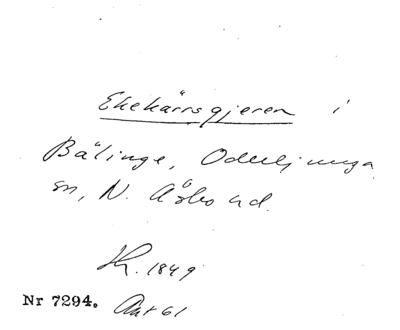 Ekekärrsgjeren i
Bälinge, Oderljunga
sn, N. Åsbo hd.
Sk. 1849
Nr 7294. Avt 61